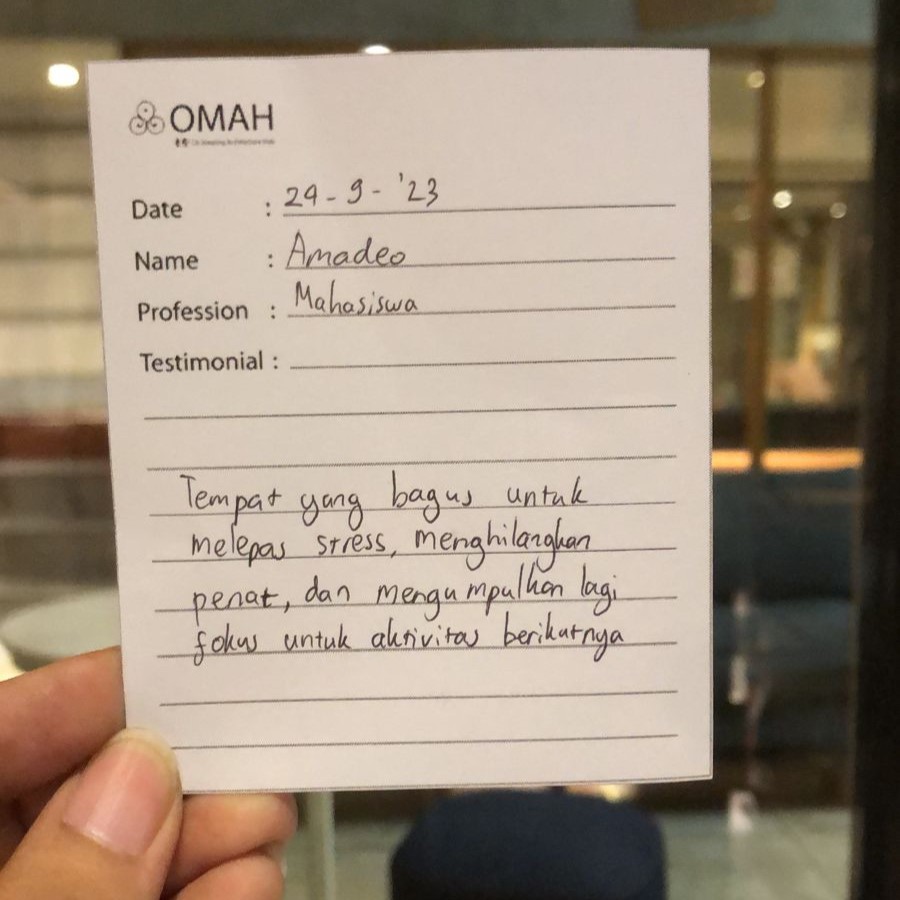 OMAH
Date : 29-9-'23
Name : Amadeo
Profession : Mahasiswa
Testimonial :
Tempat yang bagus untuk
melepas stress, menghilangkan
penat, dan mengumpulkan lagi
fokus untuk aktivitas berikutnya